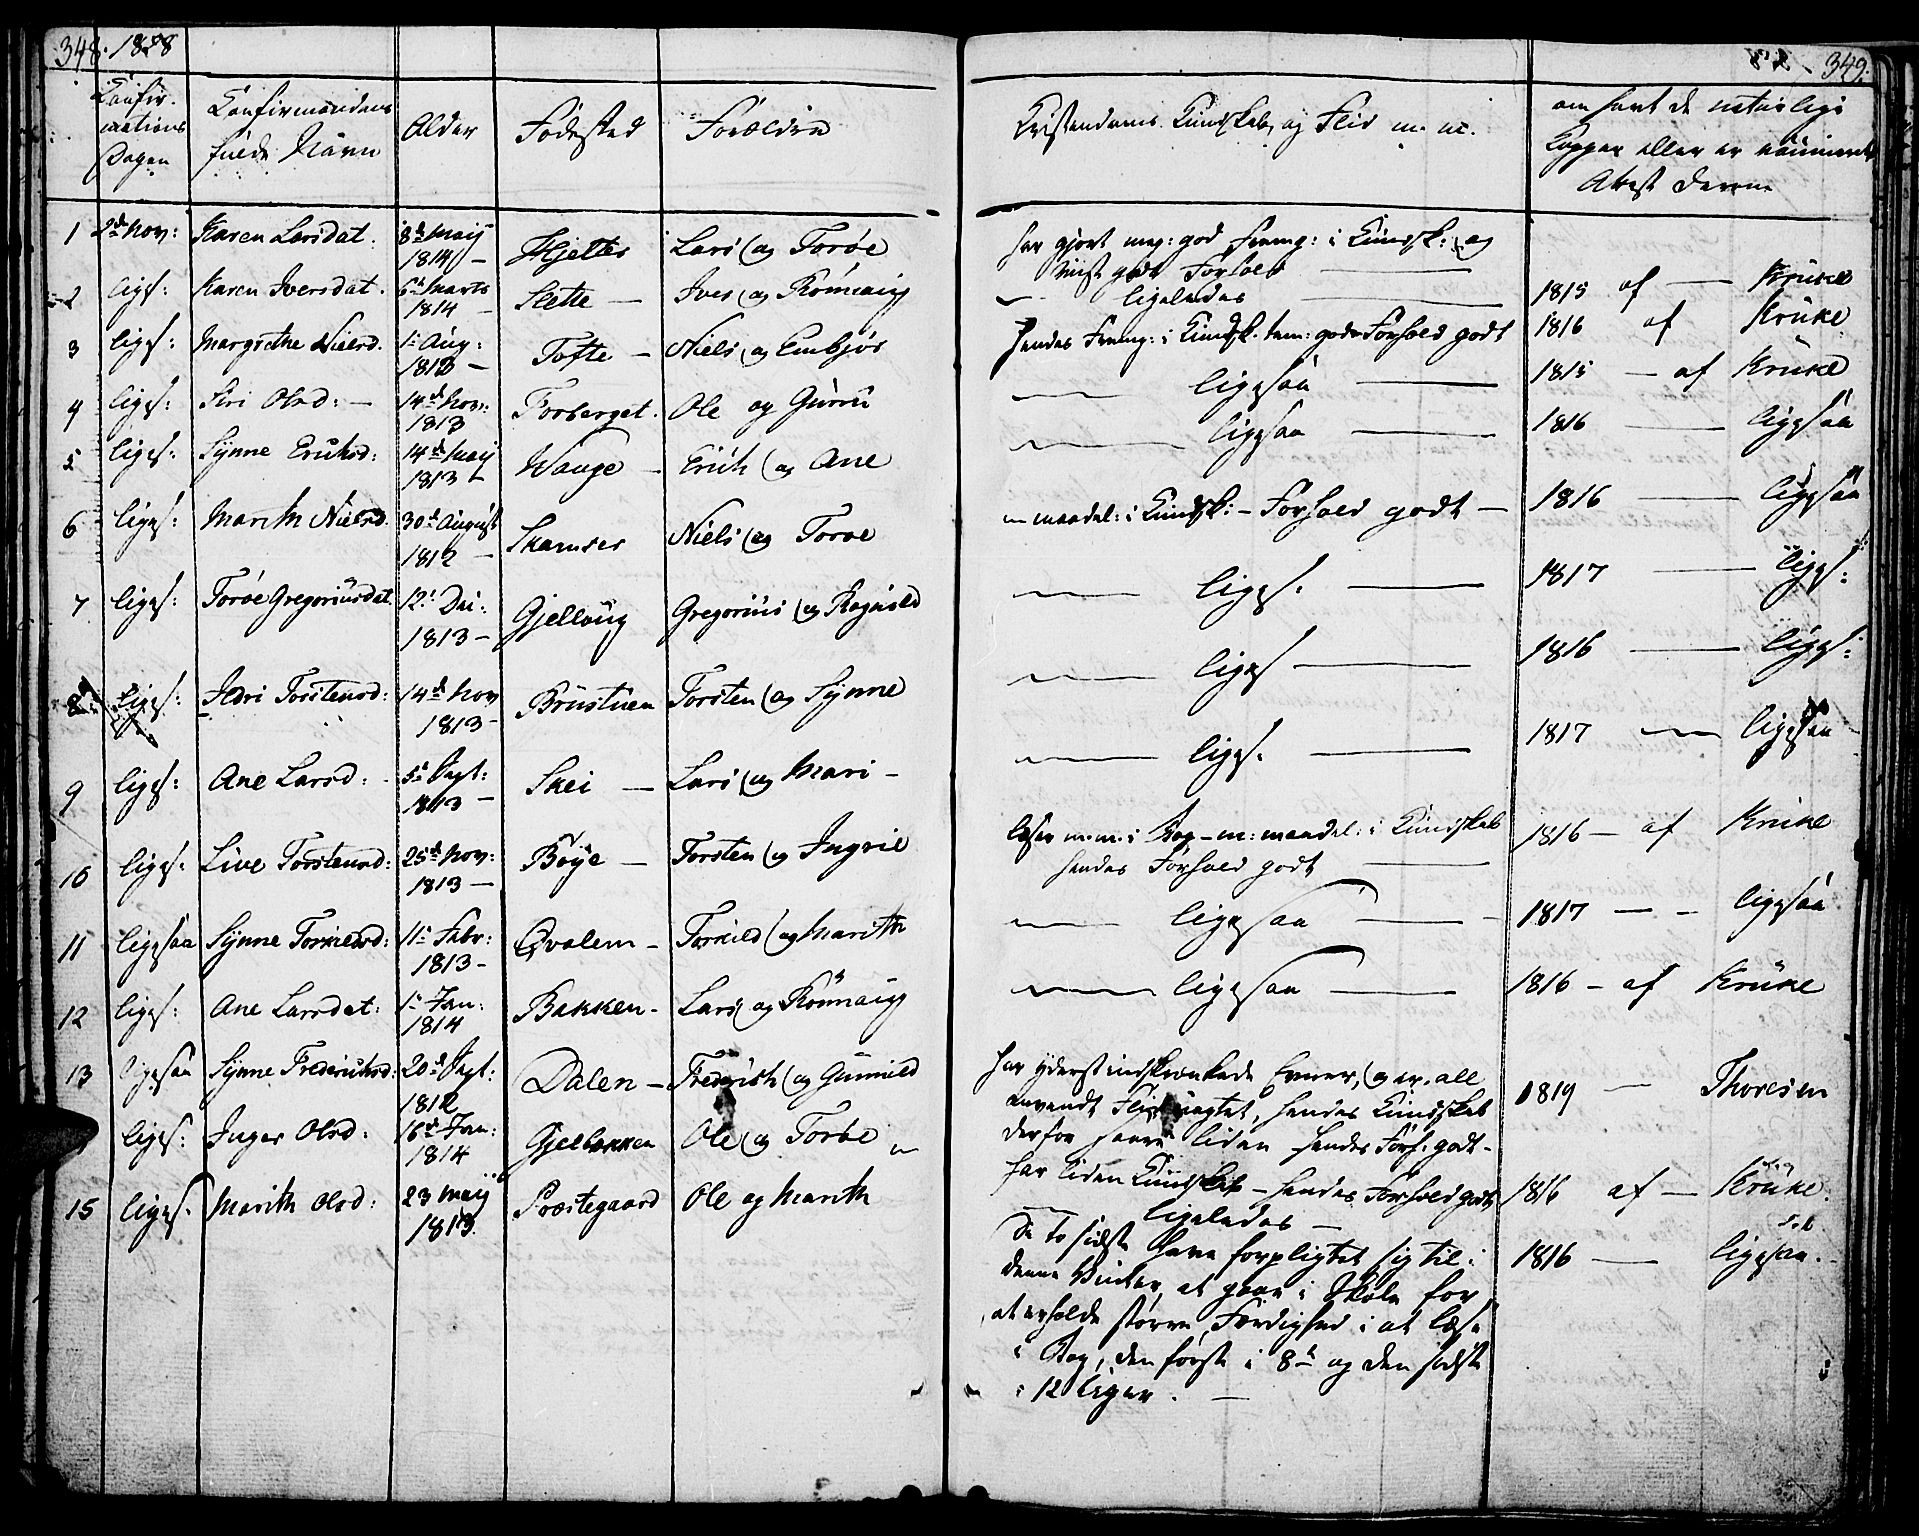 348. 1828
Confir-
mations
Dagen
Confirmandens
fulde Navn
Alder
Fødested
Forældre
1 2d Nov: Karen Larsdat. 8d Maij 1814 — Hjelter Lars og Toroe
2 liges: Karen Iversdat. 6d Marts 1814 — Slette — Iver og Rönnaug
3 liges: Margrethe Nielsd. 1 Aug: 1813 — Tofte — Niels og Embjör
4 liges: Siri Olsd: — 14d Nov: 1813 Forberget. Ole og Gurru
5 liges: Synne Erichsd: 14d Maij 1813 Wange — Erich og Ane
6 liges: Marith Nielsd. 30d August 1812 — Skamser Niels og Toroe
7 liges: Toróe Gregoriusdat 12 Dec: 1813 — Gjellaug Gregorius og Ragnild
8 liges: Torstensd: 14d Nov 1813 — Brustuen Torsten og Synne
9 liges: Ane Larsd: — 5 Sept: 1813 — Skei — Lars og Mari —
10 liges: Live Torstensd: 25d Nov: 1813 — Böye — Torsten og Ingrie
11 ligesaa Synne Torkields: 11 Febr: 1813 — Qvalem — Torkild og Marith
12 liges: Ane Larsdat: 1 Jan: 1814 Bakken — Lars og Rönnaug
13 ligesaa Synne Frederichsd: 20d Sept: 1812 Dalen — Frederich og Gunnild
liges: Inger Olsd: 16d Jan: 1814 Gjelbakken Ole og Toroe
15 liges. Marith Olsd: 23 Maij 1813. Præstegaard Ole og Marith
349.
Kristendoms Kundskab, og Flid m. m.
om havt de naturlige
Kopper eller er vaccineret
Attest derom
har gjort meg: god Fremg: i Kundsk: og
viist godt Forhold —
ligeledes — 1815 af — Krüke
hendes Fremg: i Kundsk. tem: god Forhold godt 1816 af Krüke
— ligesaa — 1815 — af Krüke
— ligesaa — 1816 — ligesaa
— maadel: i Kundsk: — Forhold godt — 1816 — ligesaa
— liges. — 1817 — liges:
— liges — 1816 — liges:
— liges. — 1817 — ligesaa
læser m. m. i Bog — m: maadel: i Kundskab 1816 — af Krüke
hendes Forhold godt —
— ligesaa — 1817 — — ligesaa
— ligesaa — 1816 — af Krüke
har yderst indskrænkede Evner, og er, all
anvendt Flid uagtet, hendes Kundskab 1819 — Thoresen
derfor saare liden hendes Forh. godt —
har liden Kundskab — hendes Forhold godt 1816 af — Krüke.
— ligeledes — 1816 — ligesaa.
De to sidste have forpligtet sig til
denne Vinter, at gaae i Skole for
at erholde større Færdighed i at læse
i Bog, den første i 8 og den sidste
i 12 Uger. —